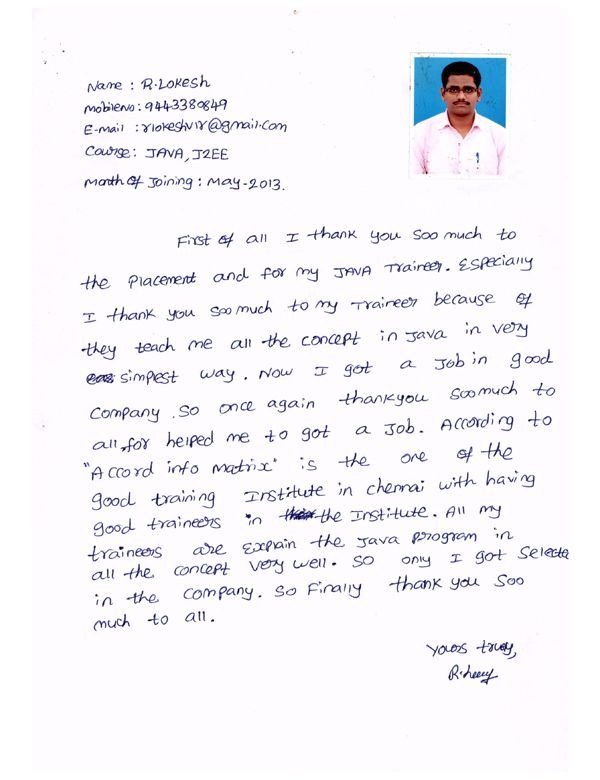 Name : R.Lokesh
MobileNo: 9443380849
E-mail : rlokeshvir@gmail.com
Course: JAVA, J2EE
Month Of Joining : May-2013.
First of all I thank you Soo much to
the Placement and for my JAVA Traineer. Especially
I thank you Soo much to my Traineer because of
they teach me all the concept in Java in very
simplest way. Now I got a Job in good
Company. So once again thankyou Soomuch to
all, for helped me to got a Job. According to
"Accord info Matrix" is the one of the
good training Institute in chennai with having
good traineers in the Institute. All my
traineers are Explain the Java Program in
all the concept very well. So only I got Selecte
in the Company. So Finally thank you Soo
much to all.
Yours truly,